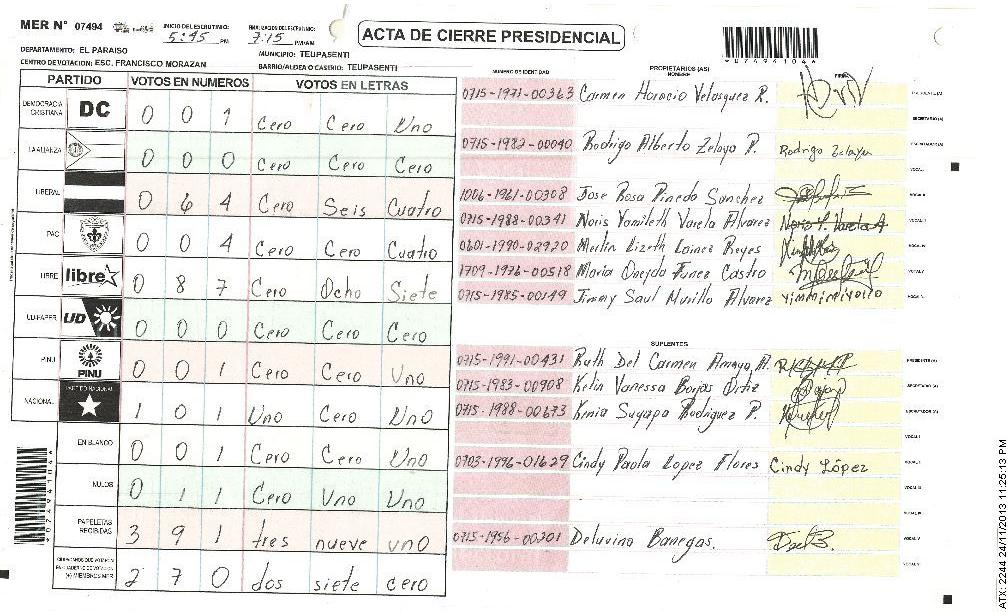 MER N° 07494
INICIO DEL ESCRUTINIO: 5:45 PM
FINALIZACION DEL ESCRUTINIO: 7:15 PM/AM
ACTA DE CIERRE PRESIDENCIAL
*07494104*
DEPARTAMENTO: EL PARAISO
MUNICIPIO: TEUPASENTI
CENTRO DE VOTACION: ESC. FRANCISCO MORAZAN
BARRIO/ALDEA O CASERIO: TEUPASENTI
PARTIDO VOTOS EN NUMEROS VOTOS EN LETRAS
DEMOCRACIA CRISTIANA DC 0 0 1 Cero Cero Uno
LA ALIANZA 0 0 0 Cero Cero Cero
LIBERAL 0 6 4 Cero Seis Cuatro
PAC 0 0 4 Cero Cero Cuatro
LIBRE libre 0 8 7 Cero Ocho Siete
UD-FAPER UD 0 0 0 Cero Cero Cero
PINU PINU 0 0 1 Cero Cero Uno
NACIONAL PARTIDO NACIONAL 1 0 1 Uno Cero Uno
EN BLANCO 0 0 1 Cero Cero Uno
NULOS 0 1 1 Cero Uno Uno
PAPELETAS RECIBIDAS 3 9 1 tres nueve uno
(+) MIEMBROS MER 2 7 0 dos siete cero
NUMERO DE IDENTIDAD PROPIETARIOS (AS) NOMBRE FIRMA
0715-1971-00363 Carmen Horacio Velasquez R. PRESIDENTE (A)
SECRETARIO (A)
0715-1982-00040 Rodrigo Alberto Zelaya P. Rodrigo Zelaya ESCRUTADOR (A)
VOCAL I
1006-1961-00308 Jose Rosa Pineda Sanchez VOCAL II
0715-1988-00341 Noris Yamileth Varela Alvarez VOCAL III
0601-1990-02920 Merlin Lizeth Lainez Reyes VOCAL IV
1709-1976-00518 Maria Oneyda Funez Castro VOCAL V
0715-1985-00149 Jimmy Saul Murillo Alvarez
SUPLENTES
0715-1991-00431 Ruth Del Carmen Amaya A. PRESIDENTE (A)
0715-1983-00908 Kelin Vanessa Borjas Ortiz SECRETARIO (A)
0715-1988-00673 Kenia Suyapa Rodriguez P. ESCRUTADOR (A)
VOCAL I
0703-1996-01629 Cindy Paola Lopez Flores Cindy López VOCAL II
VOCAL III
VOCAL IV
0715-1956-00201 Deluvina Banegas. VOCAL V
*07494104*
ATX: 2244 24/11/2013 11:25:13 PM